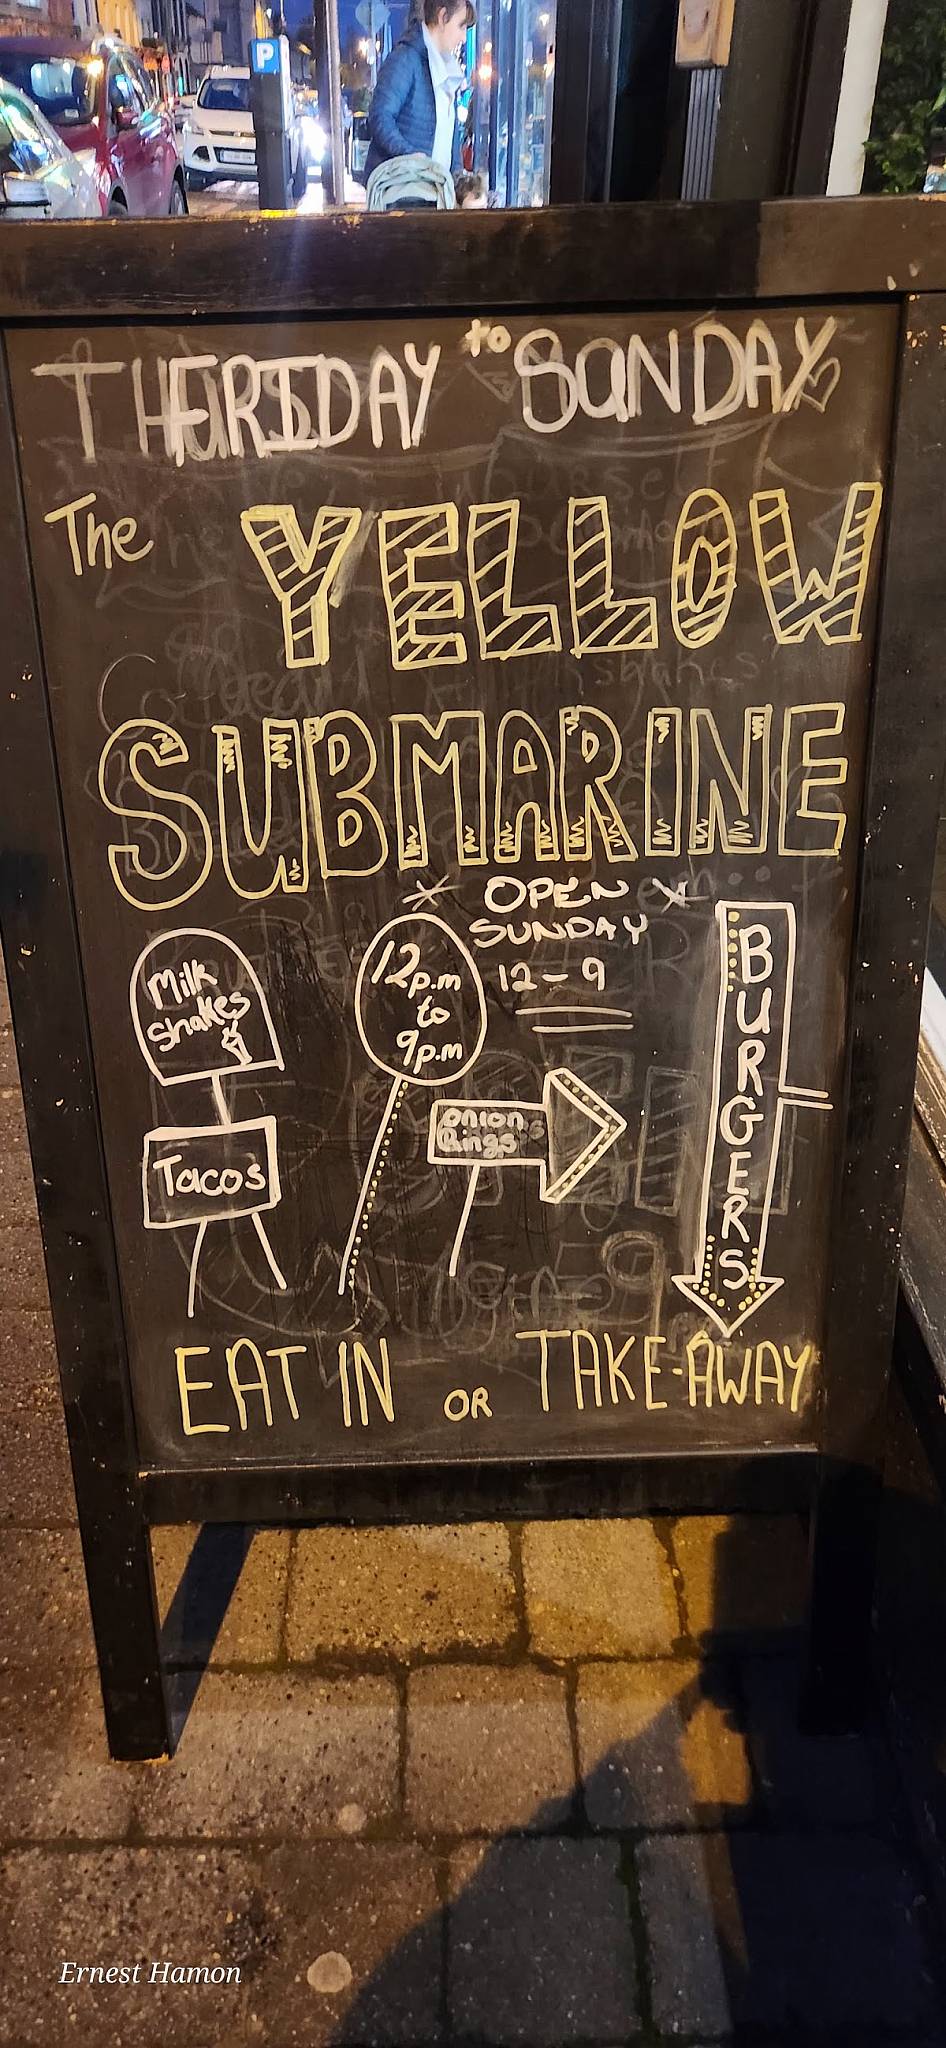 P
FRIDAY to SUNDAY
The YELLOW
SUBMARINE
OPEN
SUNDAY
12-9
Milk
Shakes
12p.m
to
9p.m
BURGERS
Onion
Rings
Tacos
EAT IN OR TAKE-AWAY
Ernest Hamon